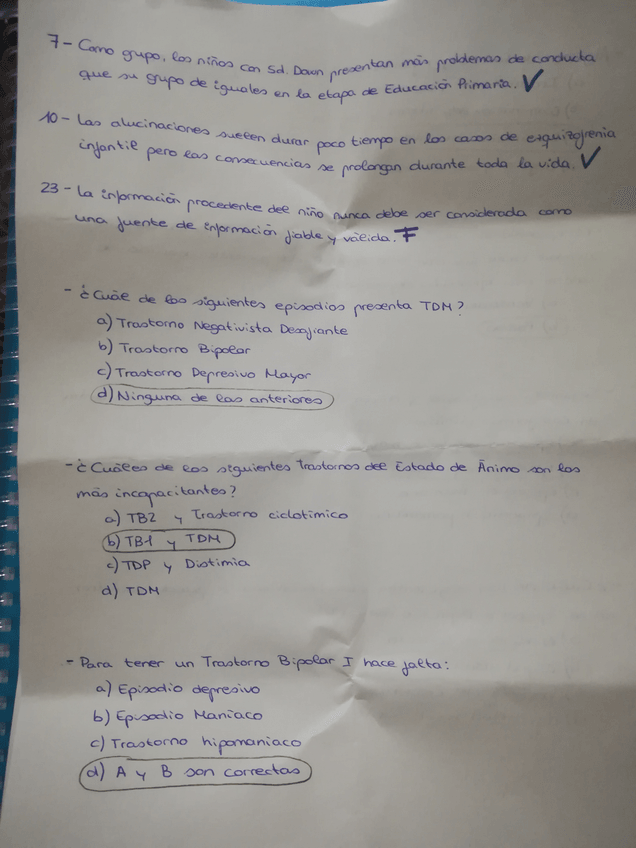 7 - Como grupo, los niños con Sd. Down presentan más problemas de conducta
que su grupo de iguales en la etapa de Educación Primaria. V
10 - Las alucinaciones suelen durar poco tiempo en los casos de esquizofrenia
infantil pero las consecuencias se prolongan durante toda la vida. V
23 - La información procedente del niño nunca debe ser considerada como
una fuente de información fiable y válida. F
- ¿Cuál de los siguientes episodios presenta TDM?
a) Trastorno Negativista Desafiante
b) Trastorno Bipolar
c) Trastorno Depresivo Mayor
d) Ninguna de las anteriores
- ¿Cuáles de los siguientes Trastornos del Estado de Ánimo son los
más incapacitantes?
a) TB2 y Trastorno ciclotímico
b) TB1 y TDM
c) TDP y Distimia
d) TDM
- Para tener un Trastorno Bipolar I hace falta:
a) Episodio depresivo
b) Episodio Maníaco
c) Trastorno hipomaníaco
d) A y B son correctas